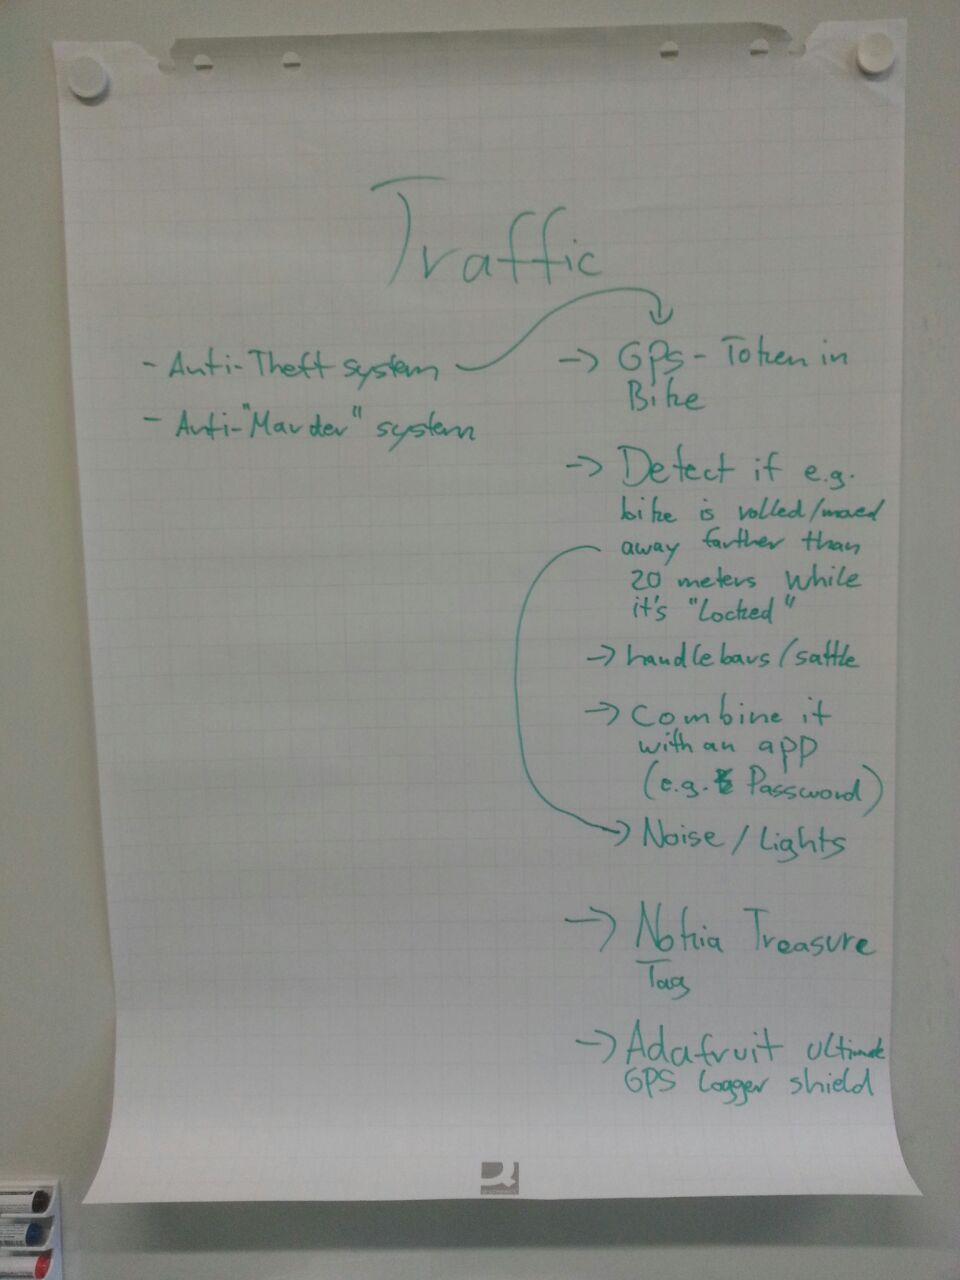 Traffic
- Anti-Theft system
- Anti-"Marder" system
-> GPS - Token in
Bike
-> Detect if e.g.
bike is rolled/moved
away farther than
20 meters while
it's "Locked"
-> handlebars/sattle
-> Combine it
with an app
(e.g. Password)
-> Noise / Lights
-> Nokia Treasure
Tag
-> Adafruit ultimate
GPS Logger shield